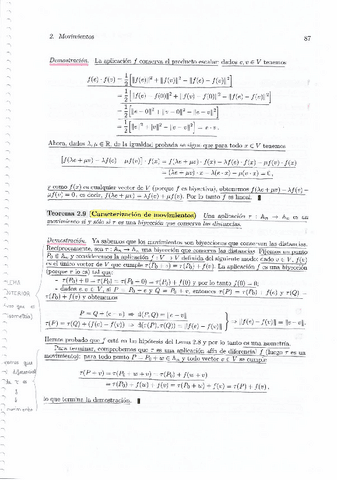 2. Movimientos 87
Demostración. La aplicación f conserva el producto escalar: dados e, v ∈ V tenemos
f(e) · f(v) = 1/2 [‖f(e)‖² + ‖f(v)‖² − ‖f(e) − f(v)‖²]
= 1/2 [‖f(e) − f(0)‖² + ‖f(v) − f(0)‖² − ‖f(e) − f(v)‖²]
= 1/2 [‖e − 0‖² + ‖v − 0‖² − ‖e − v‖²]
= 1/2 [‖e‖² + ‖v‖² − ‖e − v‖²] = e · v.
Ahora, dados λ, μ ∈ ℝ, de la igualdad probada se sigue que para todo x ∈ V tenemos
[f(λe + μv) − λf(e) − μf(v)] · f(x) = f(λe + μv) · f(x) − λf(e) · f(x) − μf(v) · f(x)
= (λe + μv) · x − λ(e · x) − μ(v · x) = 0,
y como f(x) es cualquier vector de V (porque f es biyectiva), obtenemos f(λe + μv) − λf(e) −
μf(v) = 0, es decir, f(λe + μv) = λf(e) + μf(v). Por lo tanto f es lineal.
Teorema 2.9 (Caracterización de movimientos) Una aplicación τ : Aₙ → Aₙ es un
movimiento si y sólo si τ es una biyección que conserva las distancias.
Demostración. Ya sabemos que los movimientos son biyecciones que conservan las distancias.
Recíprocamente, sea τ : Aₙ → Aₙ una biyección que conserva las distancias. Fijemos un punto
P₀ ∈ Aₙ y consideremos la aplicación f : V → V definida del siguiente modo: cada v ∈ V, f(v)
es el único vector de V que cumple τ(P₀ + v) = τ(P₀) + f(v). La aplicación f es una biyección
(porque τ lo es) tal que:
- τ(P₀) + 0 = τ(P₀) = τ(P₀ + 0) = τ(P₀) + f(0) y por lo tanto f(0) = 0;
- dados e, v ∈ V, si P = P₀ + e y Q = P₀ + v, entonces τ(P) = τ(P₀) + f(e) y τ(Q) =
τ(P₀) + f(v) y obtenemos
P = Q + (e − v) ⇒ d(P, Q) = ‖e − v‖
τ(P) = τ(Q) + (f(e) − f(v)) ⇒ d(τ(P), τ(Q)) = ‖f(e) − f(v)‖ } ⇒ ‖f(e) − f(v)‖ = ‖e − v‖.
Hemos probado que f está en las hipótesis del Lema 2.8 y por lo tanto es una isometría.
Para terminar, comprobemos que τ es una aplicación afín de diferencial f (luego τ es un
movimiento): para todo punto P = P₀ + w ∈ Aₙ y todo vector v ∈ V se cumple
τ(P + v) = τ(P₀ + w + v) = τ(P₀) + f(w + v)
= τ(P₀) + f(w) + f(v) = τ(P₀ + w) + f(v) = τ(P) + f(v),
lo que termina la demostración.